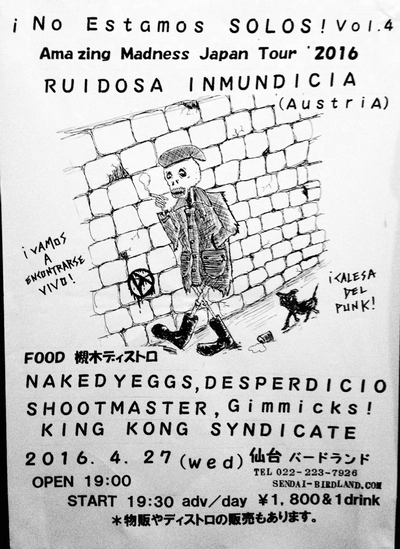 ¡No Estamos SOLOS! Vol.4
Amazing Madness Japan Tour '2016
RUIDOSA INMUNDICIA
(AustriA)
¡VAMOS
A
ENCONTRARSE
VIVO!
¡CALESA
DEL
PUNK!
FOOD 槻木ディストロ
NAKEDYEGGS, DESPERDICIO
SHOOTMASTER, Gimmicks!
KING KONG SYNDICATE
2016. 4. 27 (wed) 仙台 バードランド
TEL 022-223-7926
SENDAI-BIRDLAND.COM
OPEN 19:00
START 19:30 adv/day ¥1,800&1drink
*物販やディストロの販売もあります。